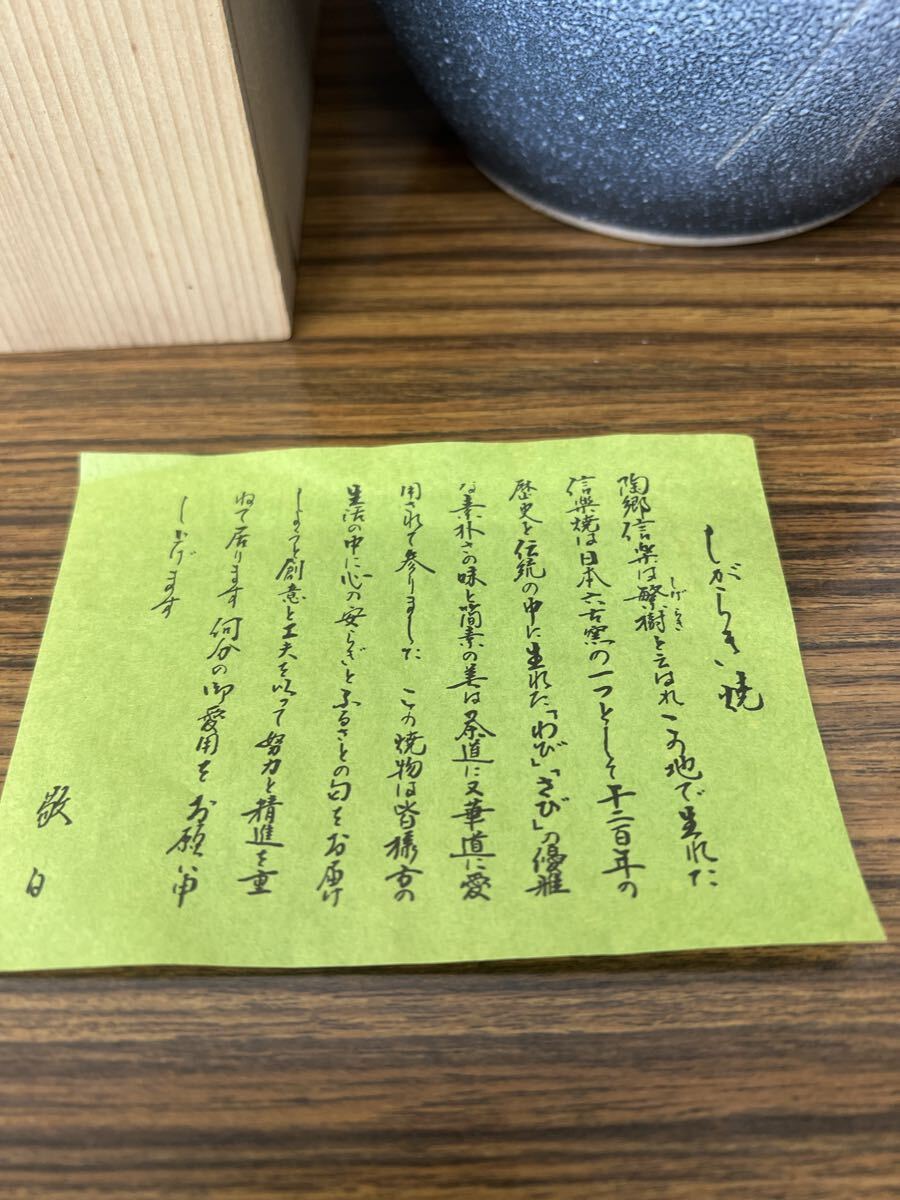 しがらき焼
陶郷信楽は繁樹と云はれこの地で生れた
しげらき
信楽焼は日本六古窯の一つとして千二百年の
歴史と伝統の中に生れた「わび」「さび」の優雅
な素朴さの味と簡素の美は茶道に又華道に愛
用されて参りました この焼物は皆様方の
生活の中に心の安らぎとふるさとの匂をお届け
しようと創意と工夫を以って努力と精進を重
ねて居ります 何分の御愛用をお願い申
し上げます
敬白